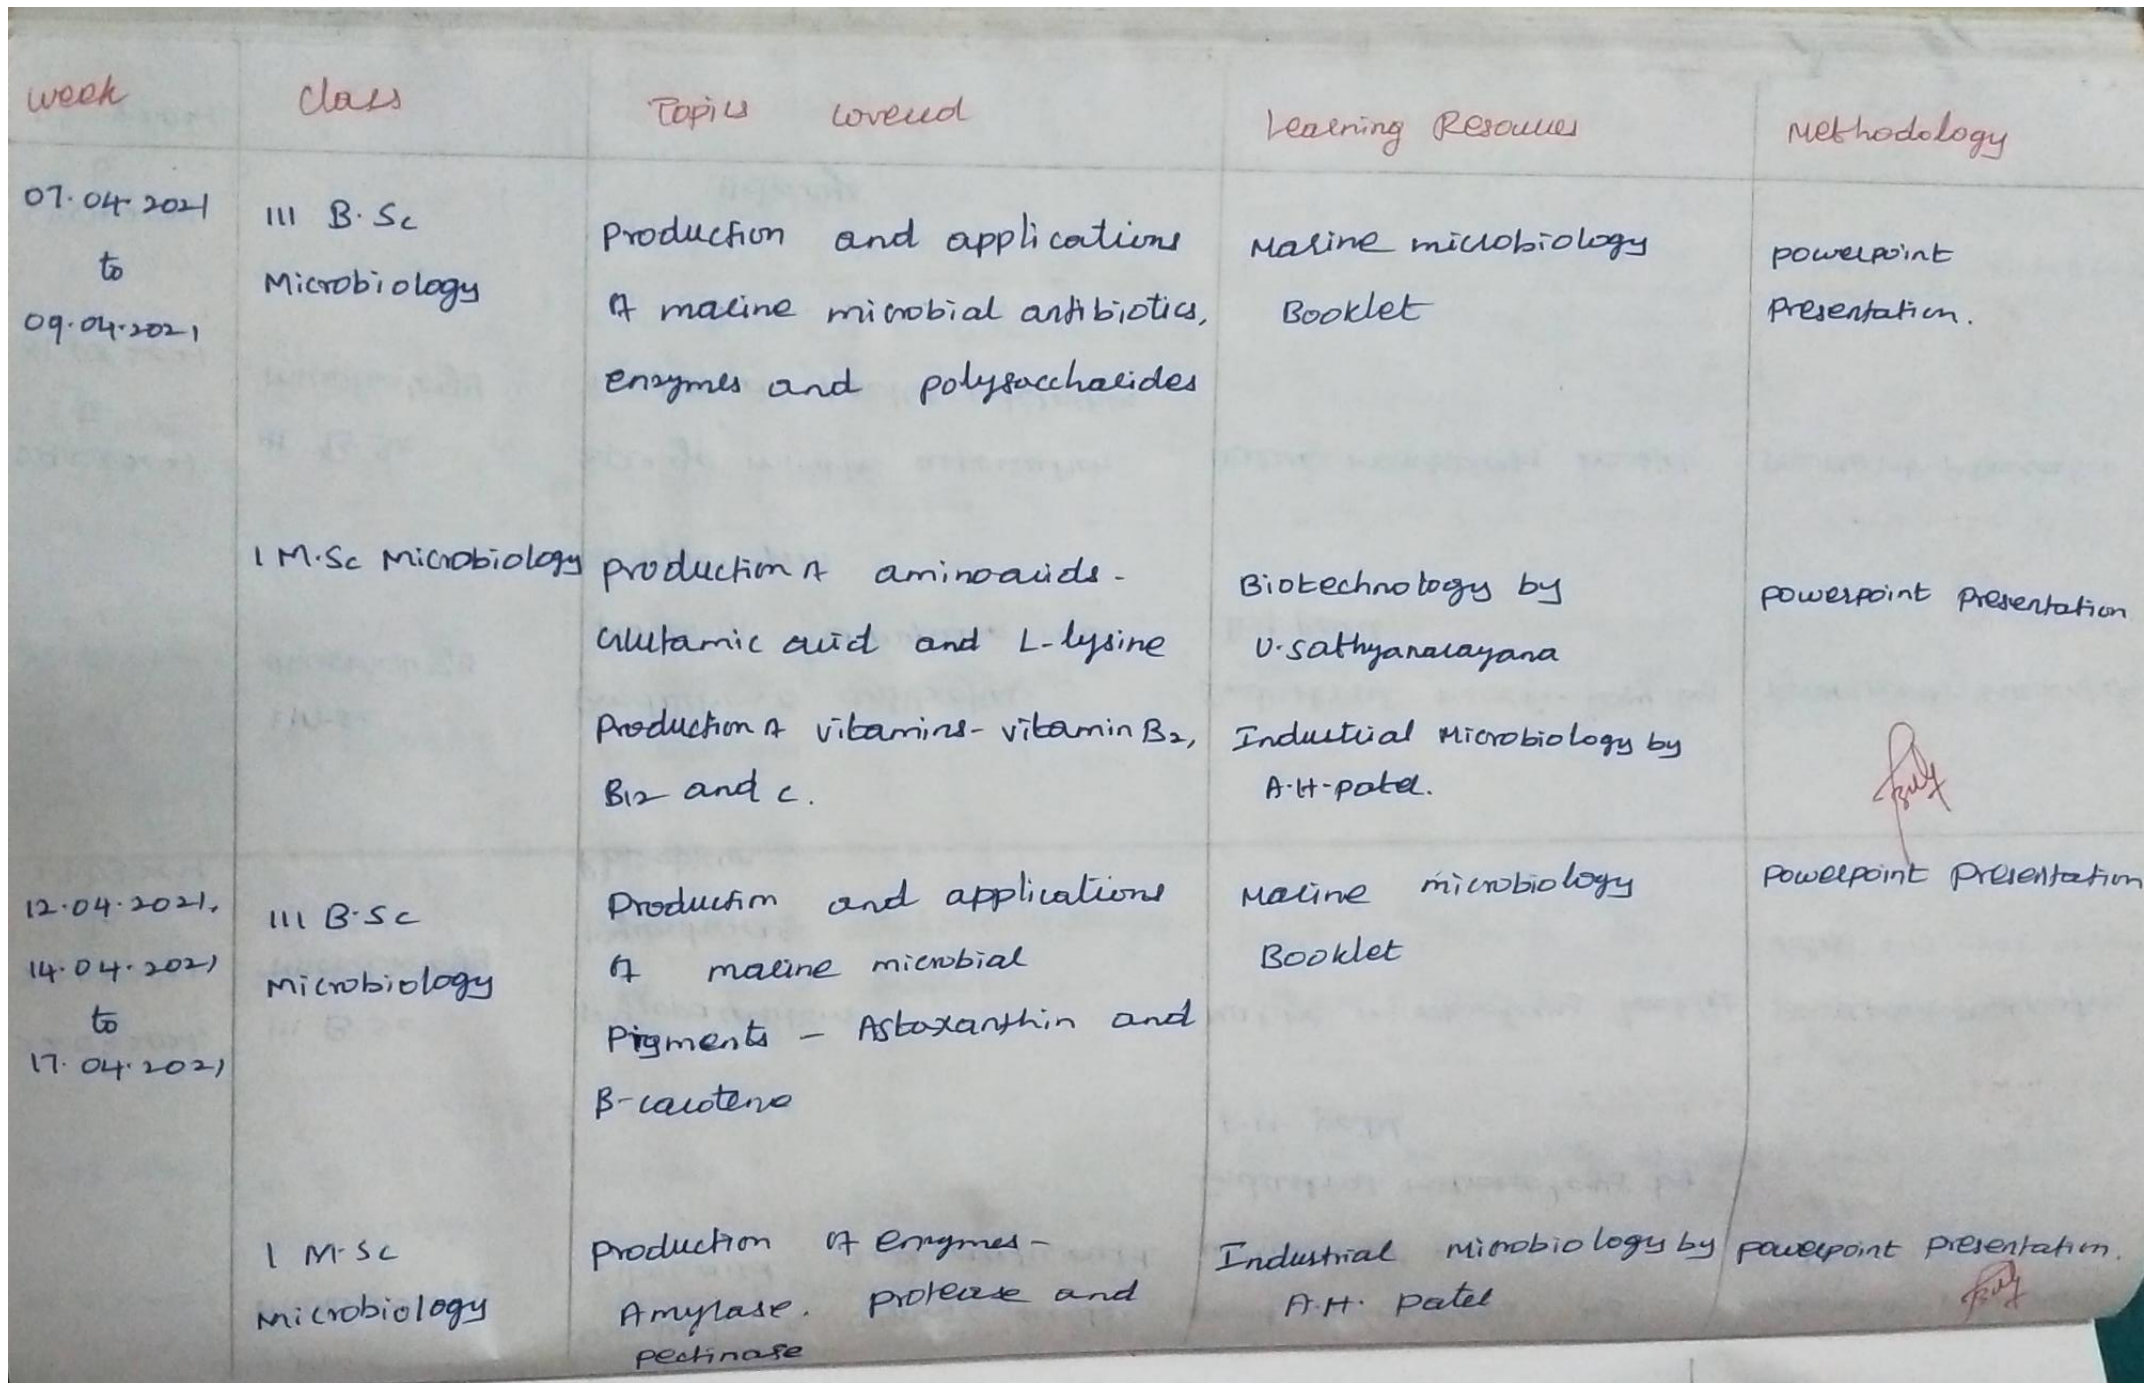 week
Class
Topics covered
Learning Resources
Methodology
07.04.2021
to
09.04.2021
III B.Sc
Microbiology
Production and applications
of marine microbial antibiotics,
enzymes and polysaccharides
Marine microbiology
Booklet
powerpoint
Presentation.
I M.Sc Microbiology
production of aminoacids-
Glutamic acid and L-lysine
Production of vitamins- vitamin B2,
B12 and C.
Biotechnology by
U.Sathyanarayana
Industrial Microbiology by
A.H.patel.
powerpoint Presentation
12.04.2021,
14.04.2021
to
17.04.2021
III B.Sc
Microbiology
Production and applications
of marine microbial
Pigments - Astaxanthin and
B-carotene
Marine microbiology
Booklet
Powerpoint Presentation
I M.Sc
Microbiology
production of enzymes-
Amylase, protease and
pectinase
Industrial Microbiology by
A.H. Patel
powerpoint presentation.